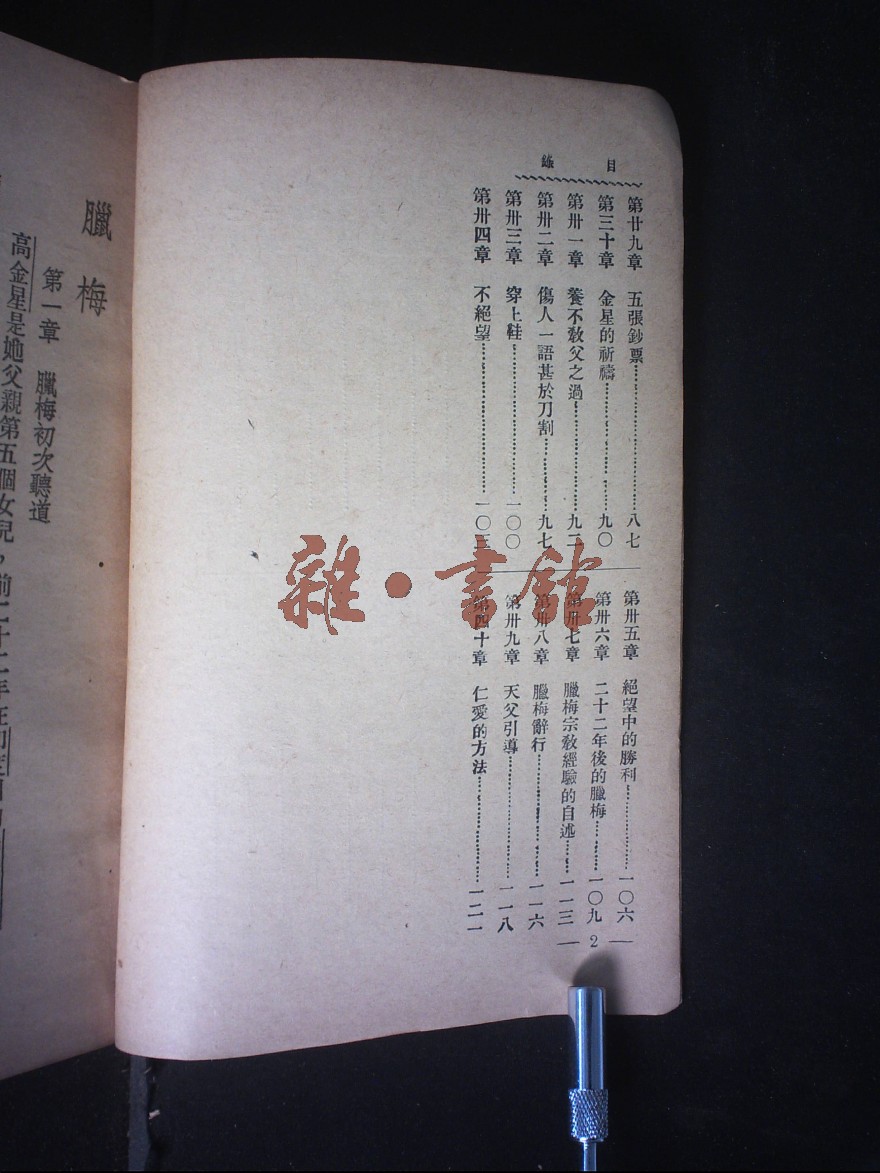 目錄
第廿九章 五張鈔票 八七
第三十章 金星的祈禱 九〇
第卅一章 養不教父之過 九二
第卅二章 傷人一語甚於刀割 九七
第卅三章 穿上鞋 一〇〇
第卅四章 不絕望 一〇三
第卅五章 絕望中的勝利 一〇六
第卅六章 二十二年後的臘梅 一〇九
第卅七章 臘梅宗教經驗的自述 一一三
第卅八章 臘梅辭行 一一六
第卅九章 天父引導 一一八
第四十章 仁愛的方法 一二一
— 2 —
臘梅
第一章 臘梅初次聽道
高金星是她父親第五個女兒，前二十二年在
雜·書館